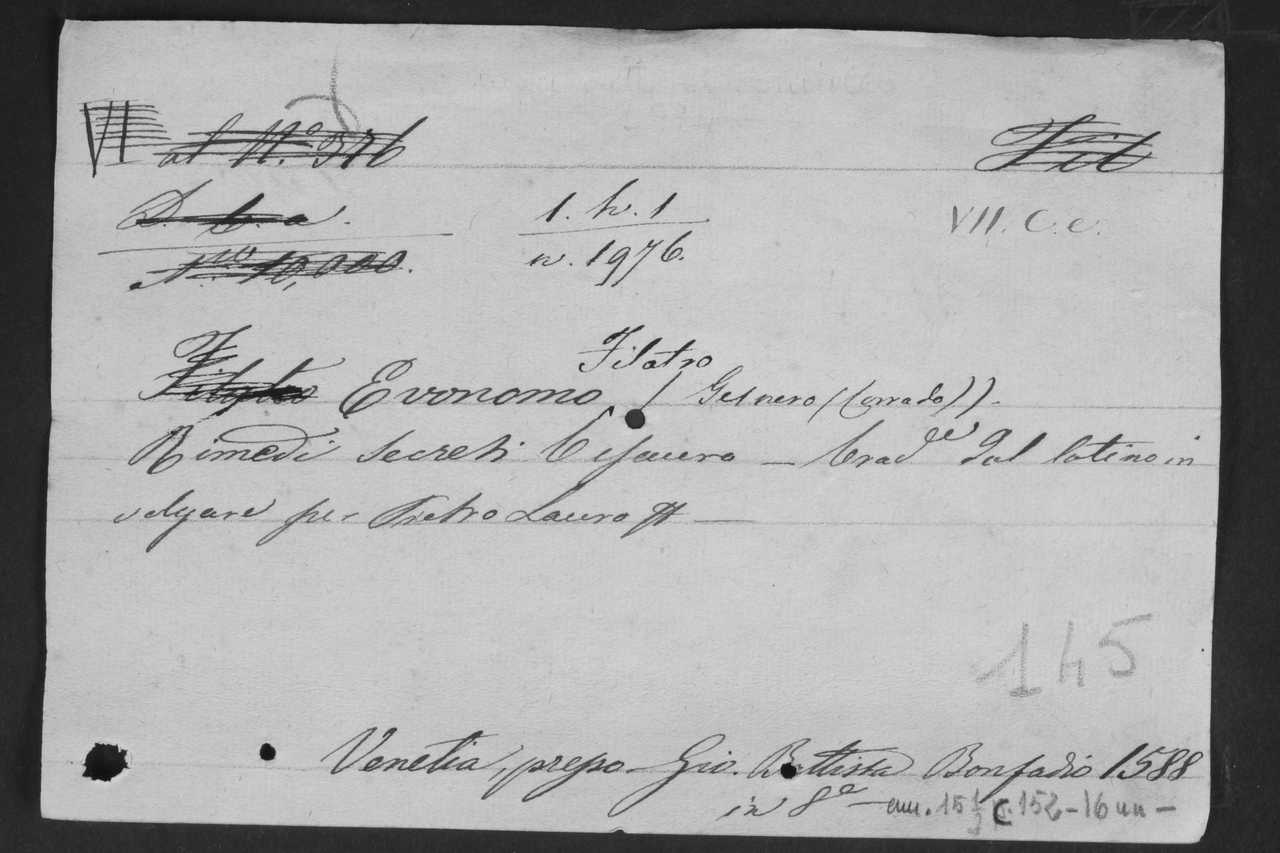 VI al N.º 376
Fil
D. b. a.
1. h. 1
VII. C. c.
N.ro 10,000.
n. 1976.
Filatro
Evonomo / Gesnero (Corrado)).
Rimedi secreti Tesauro — trad.e dal latino in
volgare per Pietro Lauro //—
145
Venetia, presso Gio. Battista Bonfadio 1588
in 8º — cm. 15 1/2 C. 152 - 16 nn -